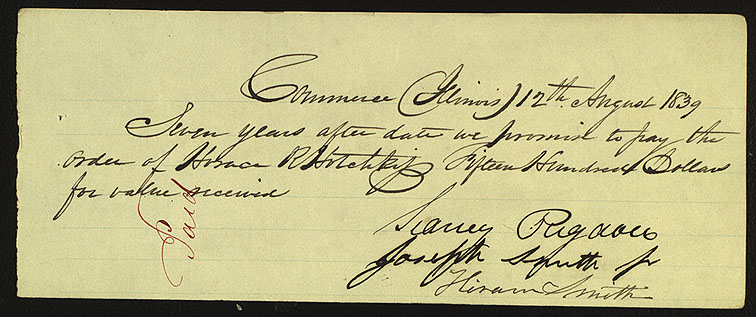 Commerce (Illinois) 12th August 1839
Seven years after date we promise to pay the
order of Horace R Hotchkiss Fifteen Hundred Dollars
for value received
Paid
Sidney Rigdon
Joseph Smith jr
Hiram Smith